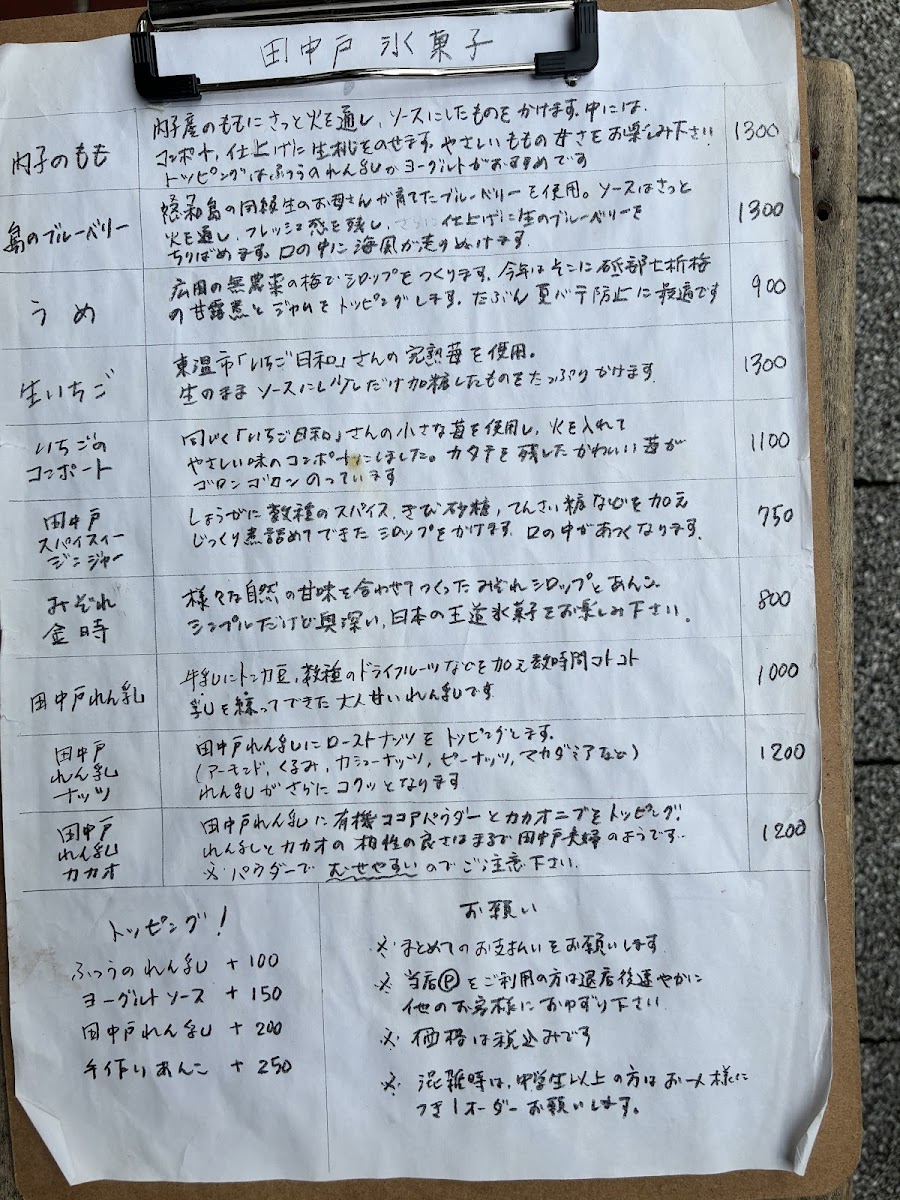 田中戸 氷菓子
内子のもも
内子産のももにさっと火を通し、ソースにしたものをかけます。中には、
コンポート、仕上げに生桃をのせます。やさしいももの甘さをお楽しみ下さい
トッピングはふつうのれん乳かヨーグルトがおすすめです
1300
島のブルーベリー
の同級生のお母さんが育てたブルーベリーを使用。ソースはさっと
火を通し、フレッシュ感を残し、さらに仕上げに生のブルーベリーを
ちりばめます。口の中に海風が走りぬけます。
1300
うめ
広田の無農薬の梅でシロップをつくります。今年はそこに砥部七折梅
の甘露煮とジャムをトッピングします。たぶん夏バテ防止に最適です
900
生いちご
東温市「いちご日和」さんの完熟苺を使用。
生のままソースにし少しだけ加糖したものをたっぷりかけます。
1300
いちごの
コンポート
同じく「いちご日和」さんの小さな苺を使用し、火を入れて
やさしい味のコンポートにしました。カタチを残したかわいい苺が
ゴロンゴロンのっています
1100
田中戸
スパイスィー
ジンジャー
しょうがに数種のスパイス、きび砂糖、てんさい糖などを加え
じっくり煮詰めてできたシロップをかけます。口の中があつくなります。
750
みぞれ
金時
様々な自然の甘味を合わせてつくったみぞれシロップとあんこ。
シンプルだけど奥深い、日本の王道氷菓子をお楽しみ下さい。
800
田中戸れん乳
牛乳にトンカ豆、数種のドライフルーツなどを加え数時間コトコト
乳を練ってできた大人甘いれん乳です
1000
田中戸
れん乳
ナッツ
田中戸れん乳にローストナッツをトッピングします。
(アーモンド、くるみ、カシューナッツ、ピーナッツ、マカダミアなど)
れん乳がさらにコクッとなります
1200
田中戸
れん乳
カカオ
田中戸れん乳に有機ココアパウダーとカカオニブをトッピング!
れん乳とカカオの相性の良さはまるで田中戸夫婦のようです。
※パウダーでむせやすいのでご注意下さい。
1200
トッピング!
ふつうのれん乳 +100
ヨーグルトソース +150
田中戸れん乳 +200
手作りあんこ +250
お願い
※まとめてのお支払いをお願いします
※当店Ⓟをご利用の方は退店後速やかに
他のお客様におゆずり下さい
※価格は税込みです
※混雑時は、中学生以上の方はお一人様に
つき1オーダーお願いします。